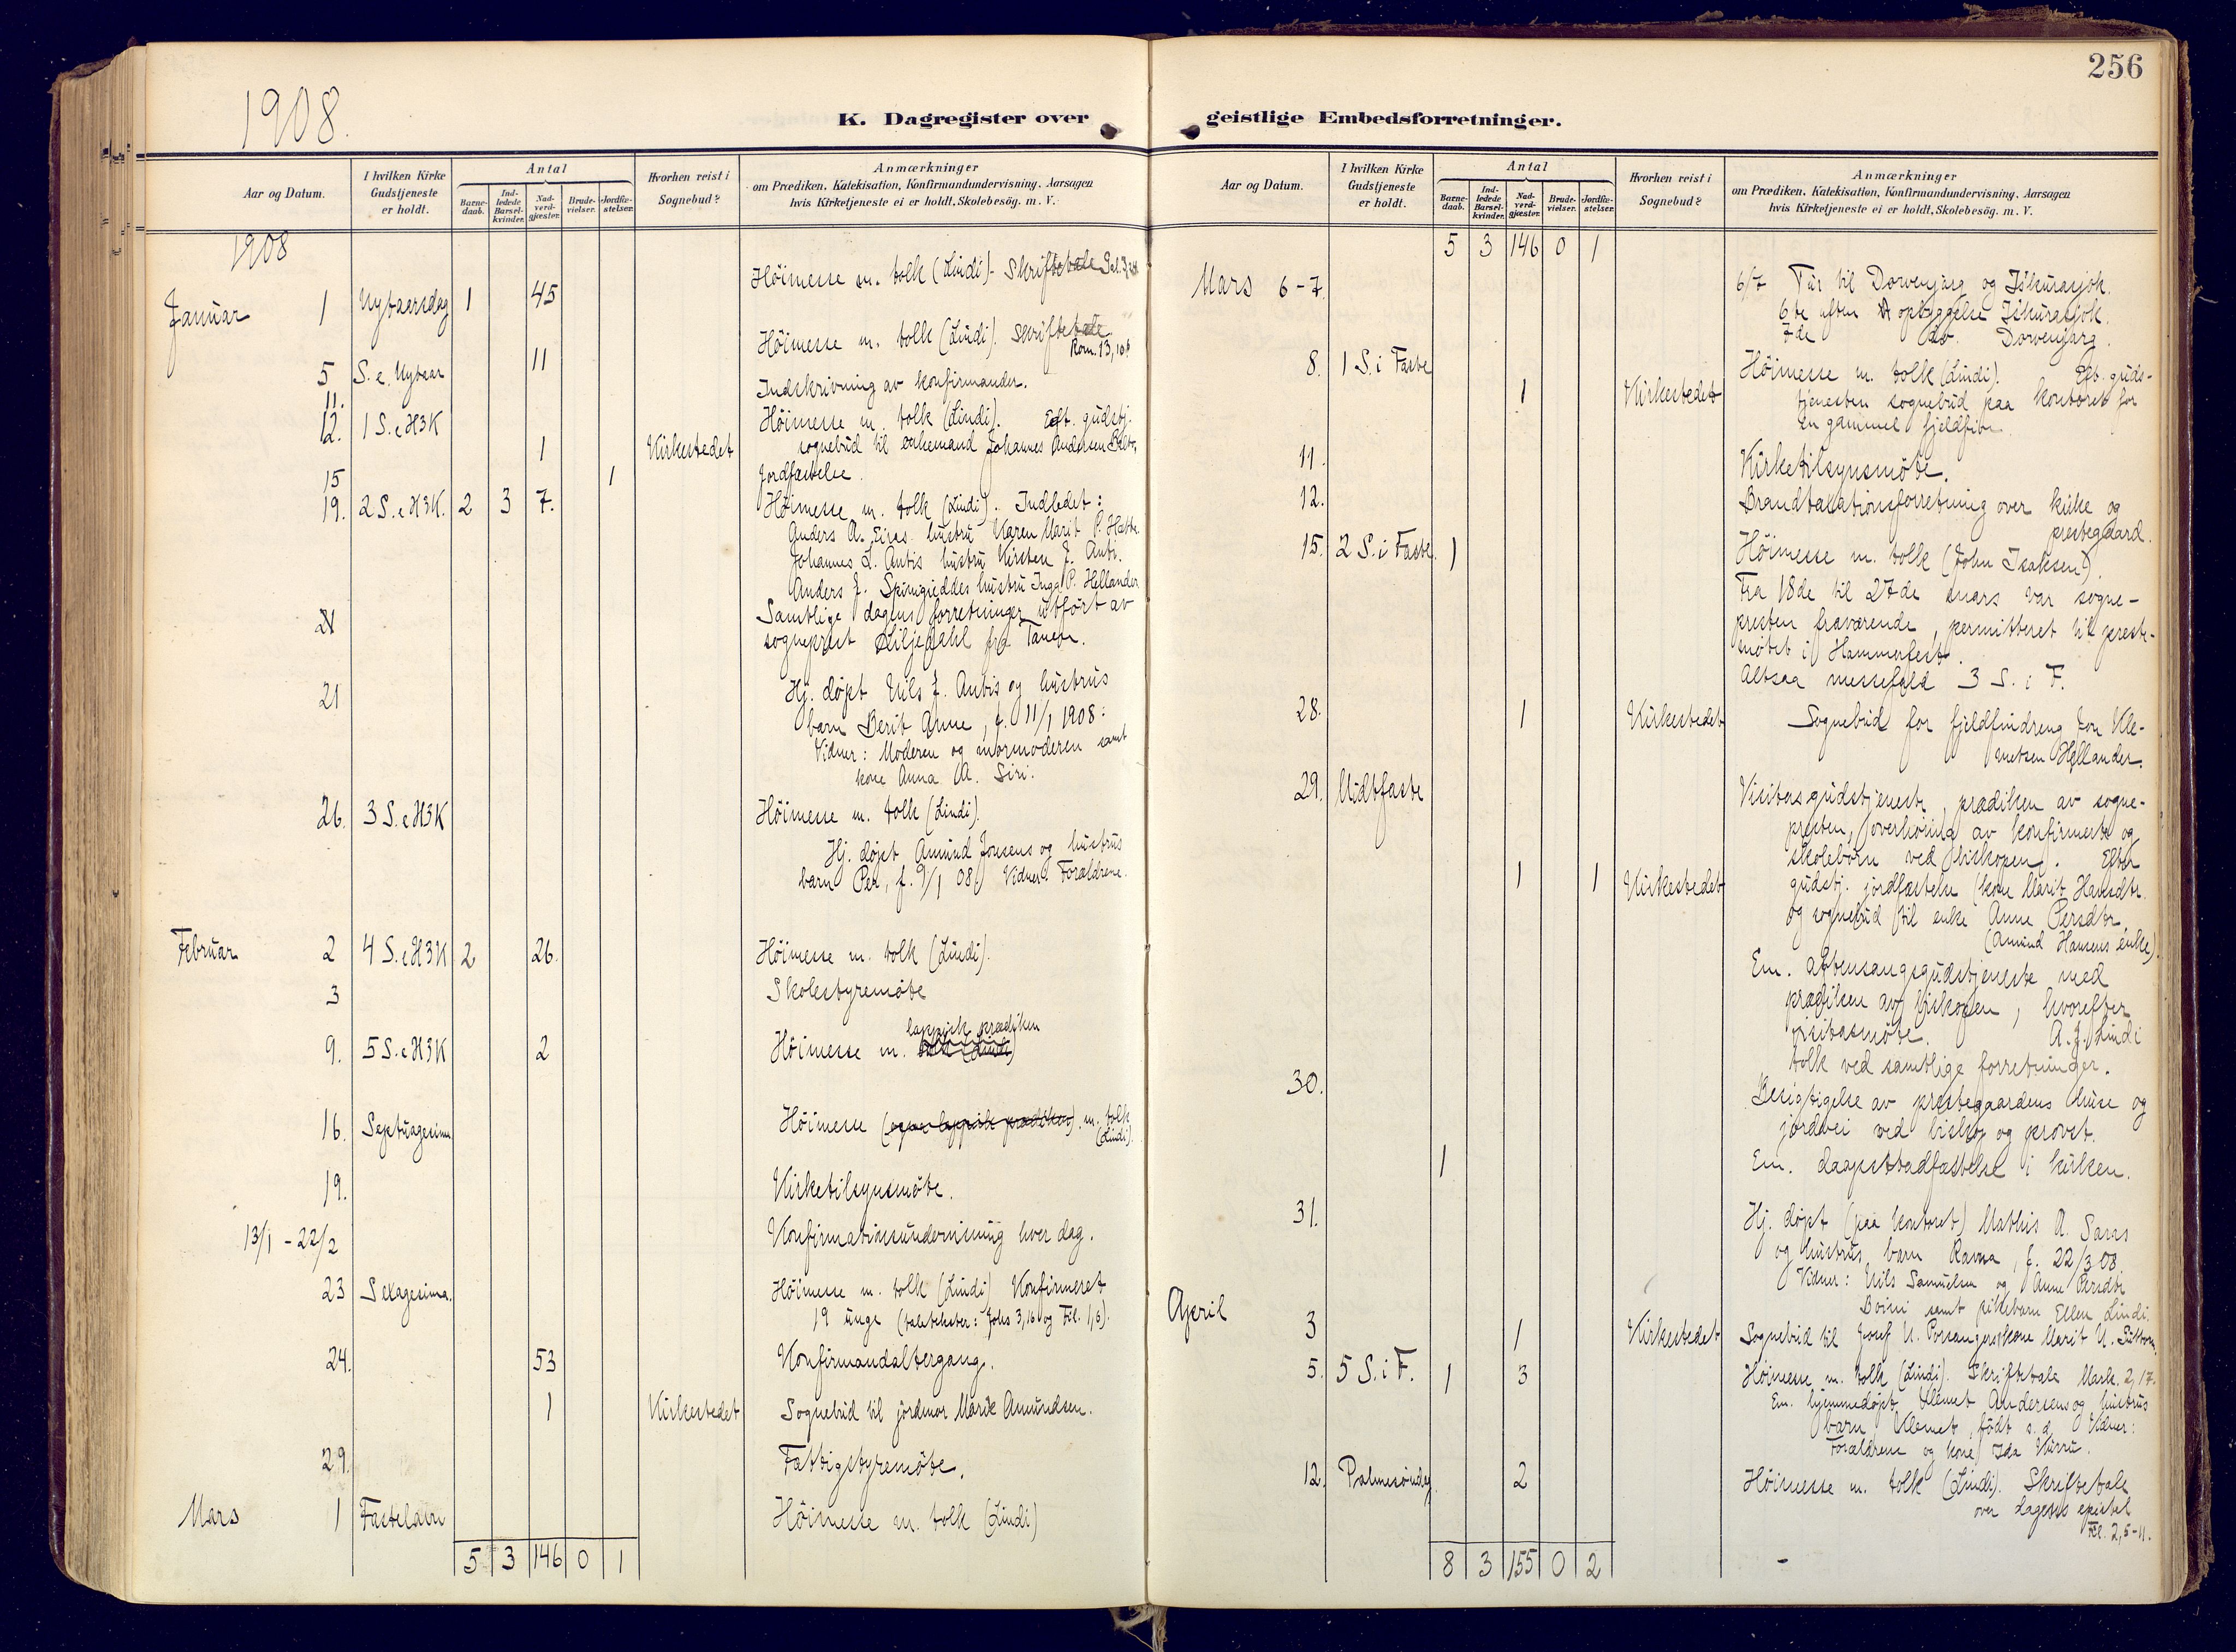 256
1908.
K. Dagregister over
Aar og Datum.
I hvilken Kirke Gudstjeneste er holdt.
Antal
Barne-daab.
Ind-ledede Barsel-kvinder.
Nad-verd-gjæster.
Brude-vielser.
Jordfæ-stelser.
Hvorhen reist i Sognebud?
Anmærkninger
om Prædiken, Katekisation, Konfirmandundervisning. Aarsagen
hvis Kirketjeneste ei er holdt, Skolebesög. m. V.
1908
Januar 1 Nytaarsdag 1 45 Höimesse m. tolk (Lindi). Skriftetale Gal. 3,
5 S. e. Nytaar 11 Höimesse m. tolk (Lindi). Skriftetale
Rom. 13,
11. Indskrivning av konfirmander.
12. 1 S. e H3K Höimesse m. tolk (Lindi). Eft. gudstj.
1 Kirkestedet sognebud til enkemand Johannes Andersen
15 1 Jordfæstelse.
19. 2 S. e H3K. 2 3 7. Höimesse m. tolk (Lindi). Indledet:
Anders A. Eiras hustru Karen Marit P. Hætta
Johannes L. Antis hustru Kirsten J. Anti.
Anders J. hustru Inga P. Hellander
Samtlige dagens forretninger utført av
sogneprest Liljedahl fra Tanen.
21
21 Hj. døpt Nils J. Antis og hustrus
barn Berit Anne, f. 11/1 1908:
Vidner: Moderen og mormoderen samt
kone Anna A. Siri.
26. 3 S. e H3K Höimesse m. tolk (Lindi).
Hj. døpt Amund Jonsens og hustrus
barn Per, f. 9/1 08. Vidner: Forældrene.
Februar 2 4 S. e H3K 2 26. Höimesse m. tolk (Lindi).
3 Skolestyremøte
lappisk prædiken
9. 5 S. e H3K 2 Höimesse m. tolk (Lindi)
16. Septuagesima Höimesse (egen lappisk prædiken). m. tolk
(Lindi).
19. Kirketilsynsmøte.
13/1 - 22/2 Konfirmationsundervisning hver dag.
23 Sexagesima. Höimesse m. tolk (Lindi) Konfirmeret
19 unge (taletekster: Johs 3,16 og Fil. 1,6).
24. 53 Konfirmandaltergang.
1 Kirkestedet Sognebud til jordmor Marie Amundsen.
29. Fattigstyremøte.
Mars 1 Fastelavn Höimesse m. tolk (Lindi)
5 3 146 0 1
geistlige Embedsforretninger.
Aar og Datum.
I hvilken Kirke Gudstjeneste er holdt.
Antal
Barne-daab.
Ind-ledede Barsel-kvinder.
Nad-verd-gjæster.
Brude-vielser.
Jordfæ-stelser.
Hvorhen reist i Sognebud?
Anmærkninger
om Prædiken, Katekisation, Konfirmandundervisning. Aarsagen
hvis Kirketjeneste ei er holdt, Skolebesög. m. V.
5 3 146 0 1
Mars 6-7. 6/7 Tur til Dorvenjarg og Iskurasjok.
6te aften opbyggelse Iskurasjok.
7de do. Dorvenjarg.
8. 1 S. i Faste Höimesse m. tolk (Lindi). Eft. guds-
1 Kirkestedet tjenesten sognebud paa kontoret for
en gammel
11. Kirketilsynsmöte.
12. Brandtaxationsforretning over kirke og
prestegaard.
15. 2 S. i Faste. 1 Höimesse m. tolk (John Isaksen).
Fra 18de til 27de mars var sogne-
presten fraværende, permitteret til preste-
møtet i Hammerfest.
Altsaa messefald 3 S. i F.
28. 1 Kirkestedet Sognebud for fjeldfindreng Jon Kle-
metsen Hellander.
29. Midtfaste Visitasgudstjeneste, prædiken av sogne-
presten, overhöring av konfirmerte og
skolebörn ved biskopen. Efter
1 1 Kirkestedet gudstj. jordfæstelse (kone Marit Hansdtr.
og sognebud til enke Anne Persdtr.
(Amund Hansens enke).
Em. aftensangsgudstjeneste med
prædiken av biskopen, hvorefter
visitasmøte. A. J. Lindi
tolk ved samtlige forretninger.
30. Besigtigelse av prestegaardens huse og
jordvei ved biskop og provst.
1 Em. daapsstadfæstelse i kirken.
31. Hj. døpt (paa kontoret) Mathis A. Saras
og hustrus barn Ravna, f. 22/3 08.
Vidner: Nils Samuelsen og Anne Persdtr
samt pikebarn Ellen Lindi.
April 3 1 Kirkestedet Sognebud til Josef N. Porsangers kone Marit N.
5. 5 S. i F. 1 3 Höimesse m. tolk (Lindi). Skriftetale Mark. 2,17.
Em. hjemmedøpt Klemet Andersens og hustrus
barn Klemet, født s. d. Vidner:
Forældrene og kone Ida
12. Palmesøndag 2 Höimesse m. tolk (Lindi). Skriftetale
over dagens epistel
Fil. 2,5-11.
8 3 155 0 2